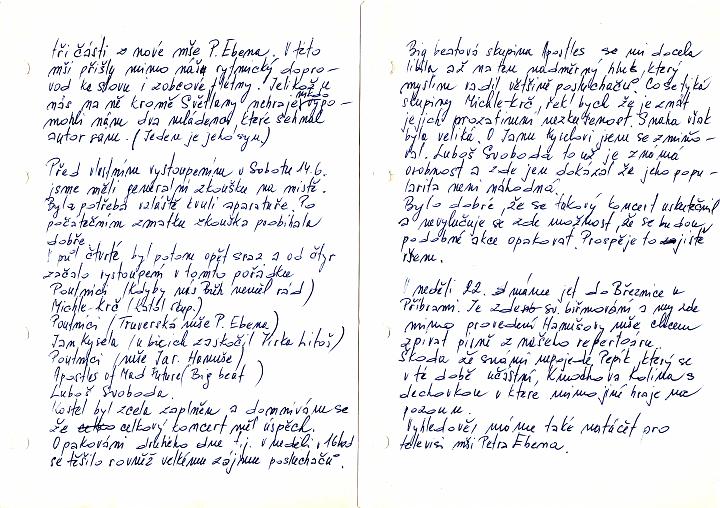 tři části z nové mše P. Ebena. V této
mši přišly mimo nášu rytmický dopro-
vod ke slovu i zobcové flétny. Jelikož u
nás na ně kromě Světlany nehraje nikdo vypo-
mohli nám dva mládenci které sehnal
autor sám. (Jeden je jeho syn)
Před vlastním vystoupením v Sobotu 14.6.
jsme měli generální zkoušku na místě.
Byla potřeba zvláště kvůli aparatuře. Po
počátečním zmatku zkouška probíhala
dobře.
V půl čtvrté byl potom opět sraz a od čtyř
začalo vystoupení v tomto pořádku
Poutníci (Kdyby nás Bůh neměl rád)
Michle-Krč (katol. skup.)
Poutníci (Truverská mše P. Ebena)
Jan Kysela (u bicích zaskočil Jirka Litoš)
Poutníci (mše Jar. Hanuše)
Apostles of Mad Future (Big beat)
Luboš Svoboda.
Kostel byl zcela zaplněn a domnívám se
že celkový koncert měl úspěch.
Opakování druhého dne tj. v neděli v 16 hod
se těšilo rovněž velkému zájmu posluchačů.
Big beatová skupina Apostles se mi docela
líbila až na ten nadměrný hluk, který
myslím vadil většině posluchačů. Co se týká
skupiny Michle-Krč, řekl bych že je znát
jejich prozatímní nezkušenost. Snaha však
byla veliká. O Janu Kyselovi jsem se zmiňo-
val. Luboš Svoboda to už je známá
osobnost a zde jen dokázal že jeho popu-
larita není náhodná.
Bylo dobré, že se takový koncert uskutečnil
a nevylučuje se zde možnost, že se budou
podobné akce opakovat. Prospěje to jistě
všem.
V neděli 22. máme jet do Březnice u
Příbrami. Je zde sv. biřmování a my zde
mimo provedení Hanušovy mše chceme
zpívat písně z našeho repertoáru.
Škoda že s námi nepojede Pepík, který se
v té době účastní, Kmochova Kolína s
dechovkou v které mimo jiné hraje na
pozoun.
Výhledově máme také natáčet pro
televisi mši Petra Ebena.